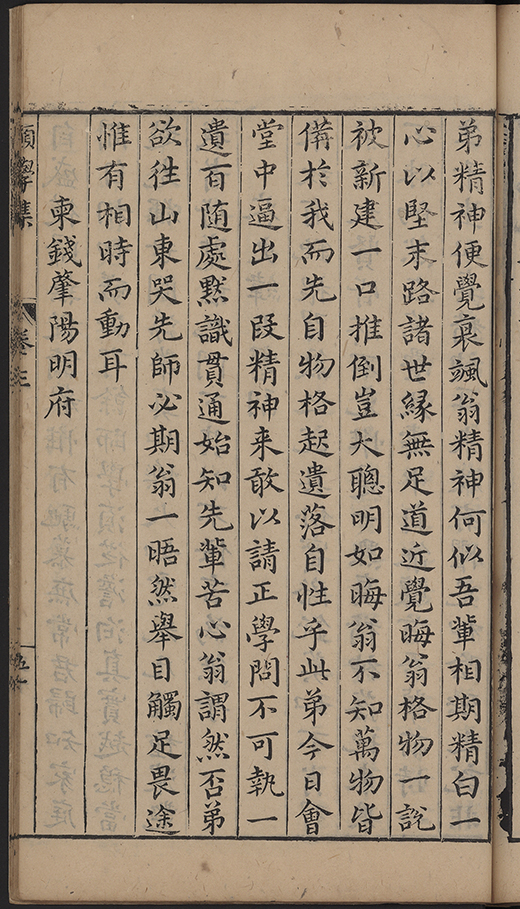 弟精神便覺衰颯翁精神何似吾軰相期精白一
心以堅末路諸世緣無足道近覺晦翁格物一說
被新建一口推倒豈大聰明如晦翁不知萬物皆
備於我而先自物格起遺落自性乎此弟今日會
堂中逼出一段精神来敢以請正學問不可執一
遺百随處黙識貫通始知先軰苦心翁謂然否弟
欲徃山東哭先師必期翁一晤然舉目觸足畏途
惟有相時而動耳
柬錢肇陽明府
願學集
卷三